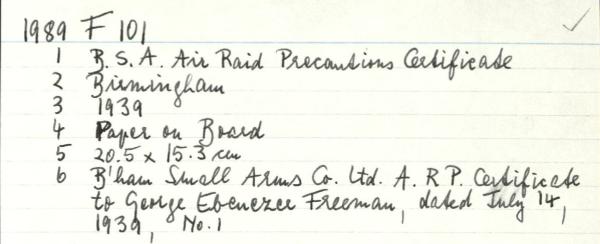 1989 F 101
1 B.S.A. Air Raid Precautions Certificate
2 Birmingham
3 1939
4 Paper on Board
5 20.5 x 15.3 cm
6 B'ham Small Arms Co. Ltd. A. R P. Certificate
to George Ebenezer Freeman, dated July 14,
1939, No. 1